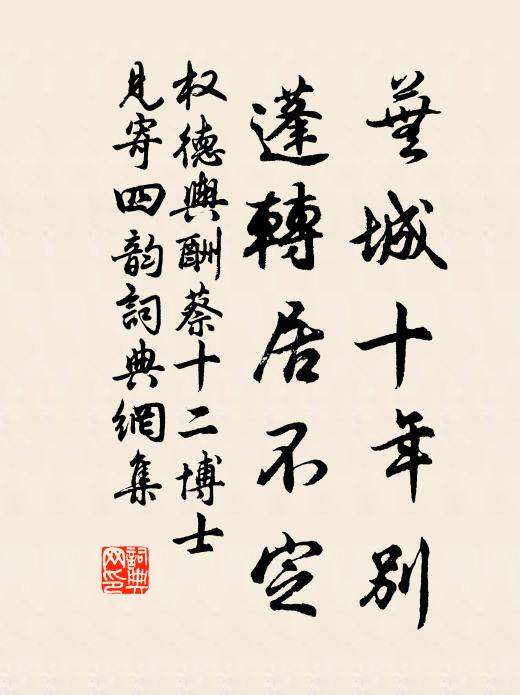 蕪城十年別
蓬轉居不定
权德輿酬蔡十二博士
見寄四韵詞典網集
詞典网印